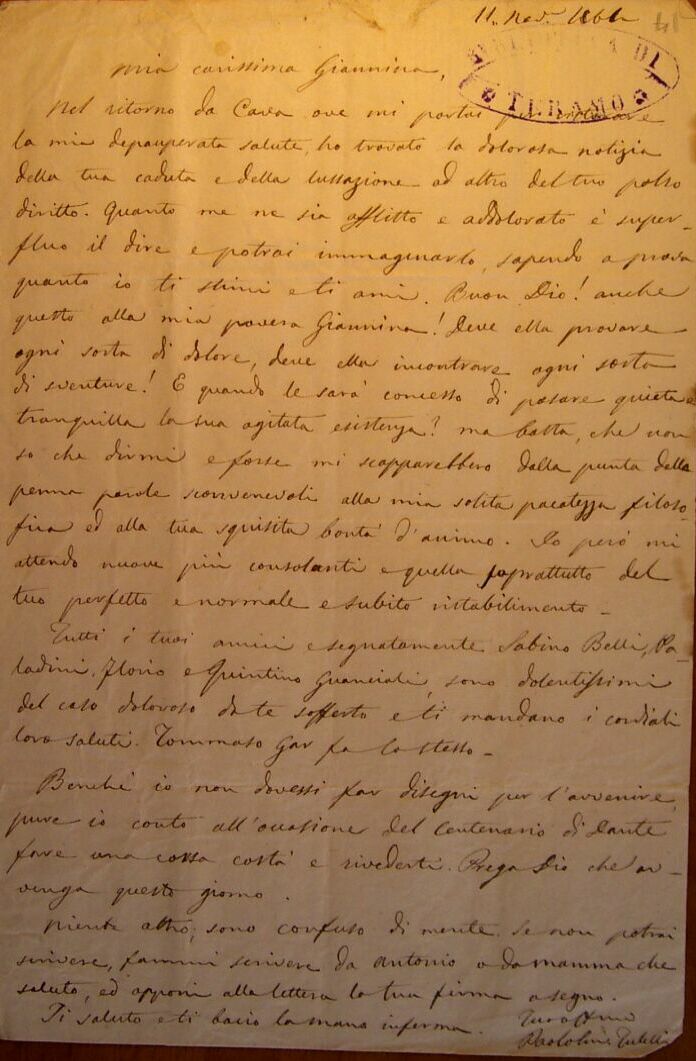 11. Nov. 1864
BIBLIOTECA DI
TERAMO
Mia carissima Giannina,
Nel ritorno da Cava ove mi portai per
la mia depauperata salute, ho trovato la dolorosa notizia
della tua caduta e della lussazione ad altro del tuo polso
diritto. Quanto me ne sia afflitto e addolorato è super-
fluo il dire e potrai immaginarlo, sapendo a prova
quanto io ti stimi e ti ami. Buon Dio! anche
questo alla mia povera Giannina! Deve ella provare
ogni sorta di dolore, deve ella incontrare ogni sorta
di sventure! E quando le sarà concesso di passare quieta e
tranquilla la sua agitata esistenza? ma basta, che non
so che dirmi e forse mi scapparebbero dalla punta della
penna parole sconvenevoli alla mia solita pacatezza filoso-
fica ed alla tua squisita bontà d'animo. Io però mi
attendo nuove più consolanti e quella soprattutto del
tuo perfetto e normale e subito ristabilimento –
Tutti i tuoi amici e segnatamente Sabino Belli, Pa-
ladini, Florio e Quintino Guanciali, sono dolentissimi
del caso doloroso da te sofferto e ti mandano i cordiali
loro saluti. Tommaso Gar fa lo stesso –
Benchè io non dovessi far disegni per l'avvenire,
pure io conto all'occasione del Centenario di Dante
fare una corsa costà e rivederti. Prega Dio che av-
venga questo giorno.
Niente altro; sono confuso di mente. Se non potrai
scrivere, fammi scrivere da Antonio o da mamma che
saluto, ed apponi alla lettera la tua firma o segno.
Ti saluto e ti bacio la mano inferma.